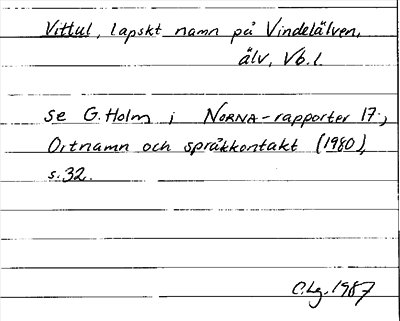 Vittul, lapskt namn på Vindelälven,
älv, Vb.l.
se G. Holm i NORNA-rapporter 17;
Ortnamn och språkkontakt (1980),
s. 32.
C.Lg. 1987